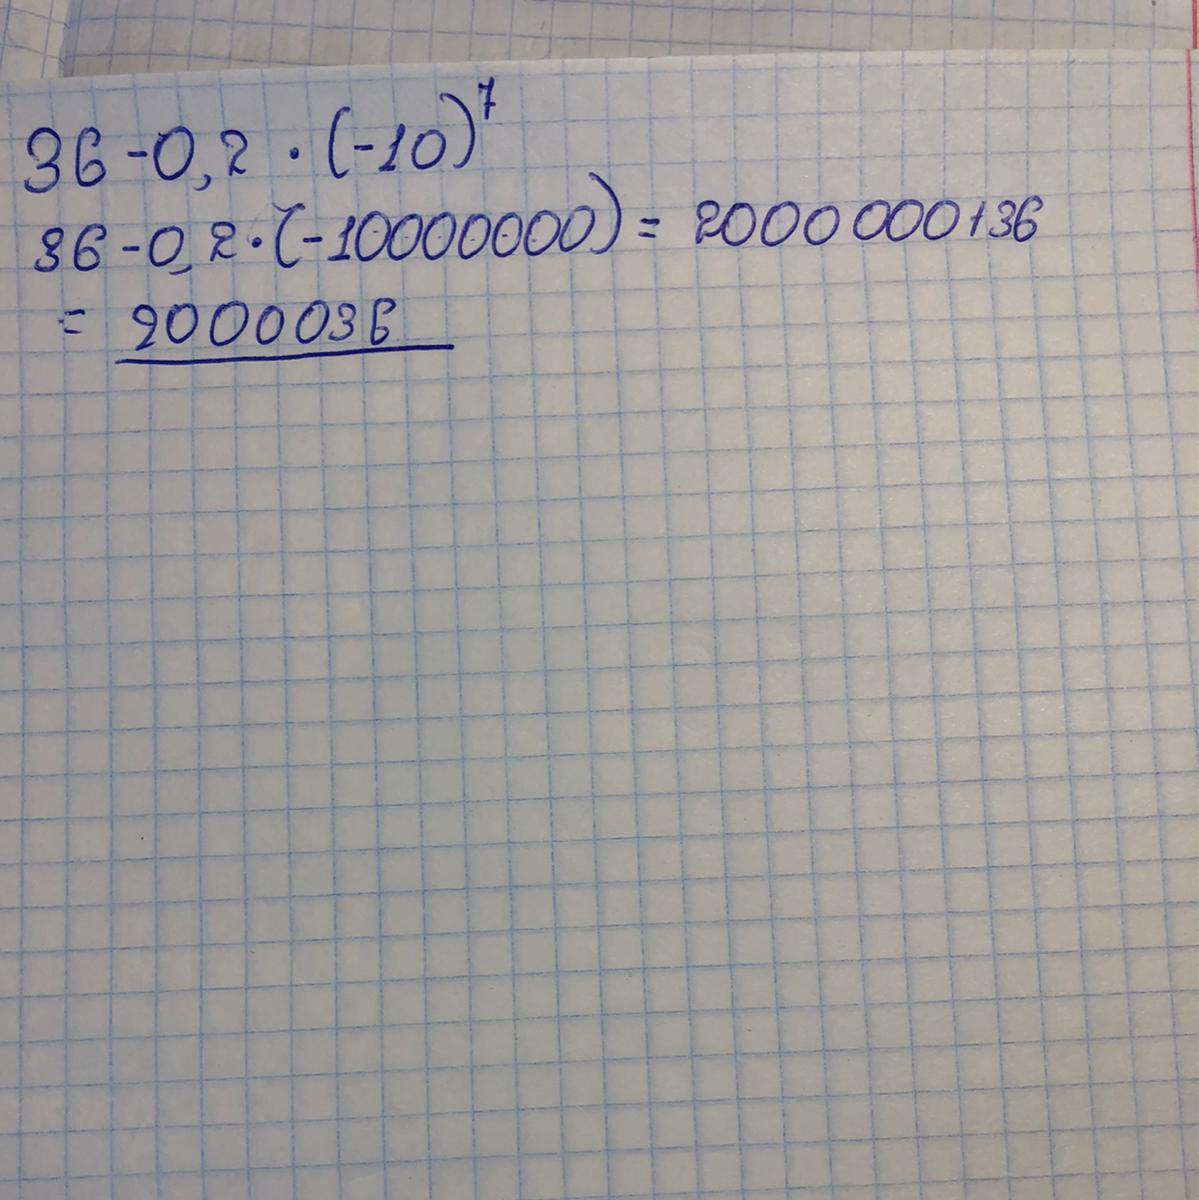 36-0,2·(-10)⁷
36-0,2·(-10000000)= 2000000+36
= 2000036